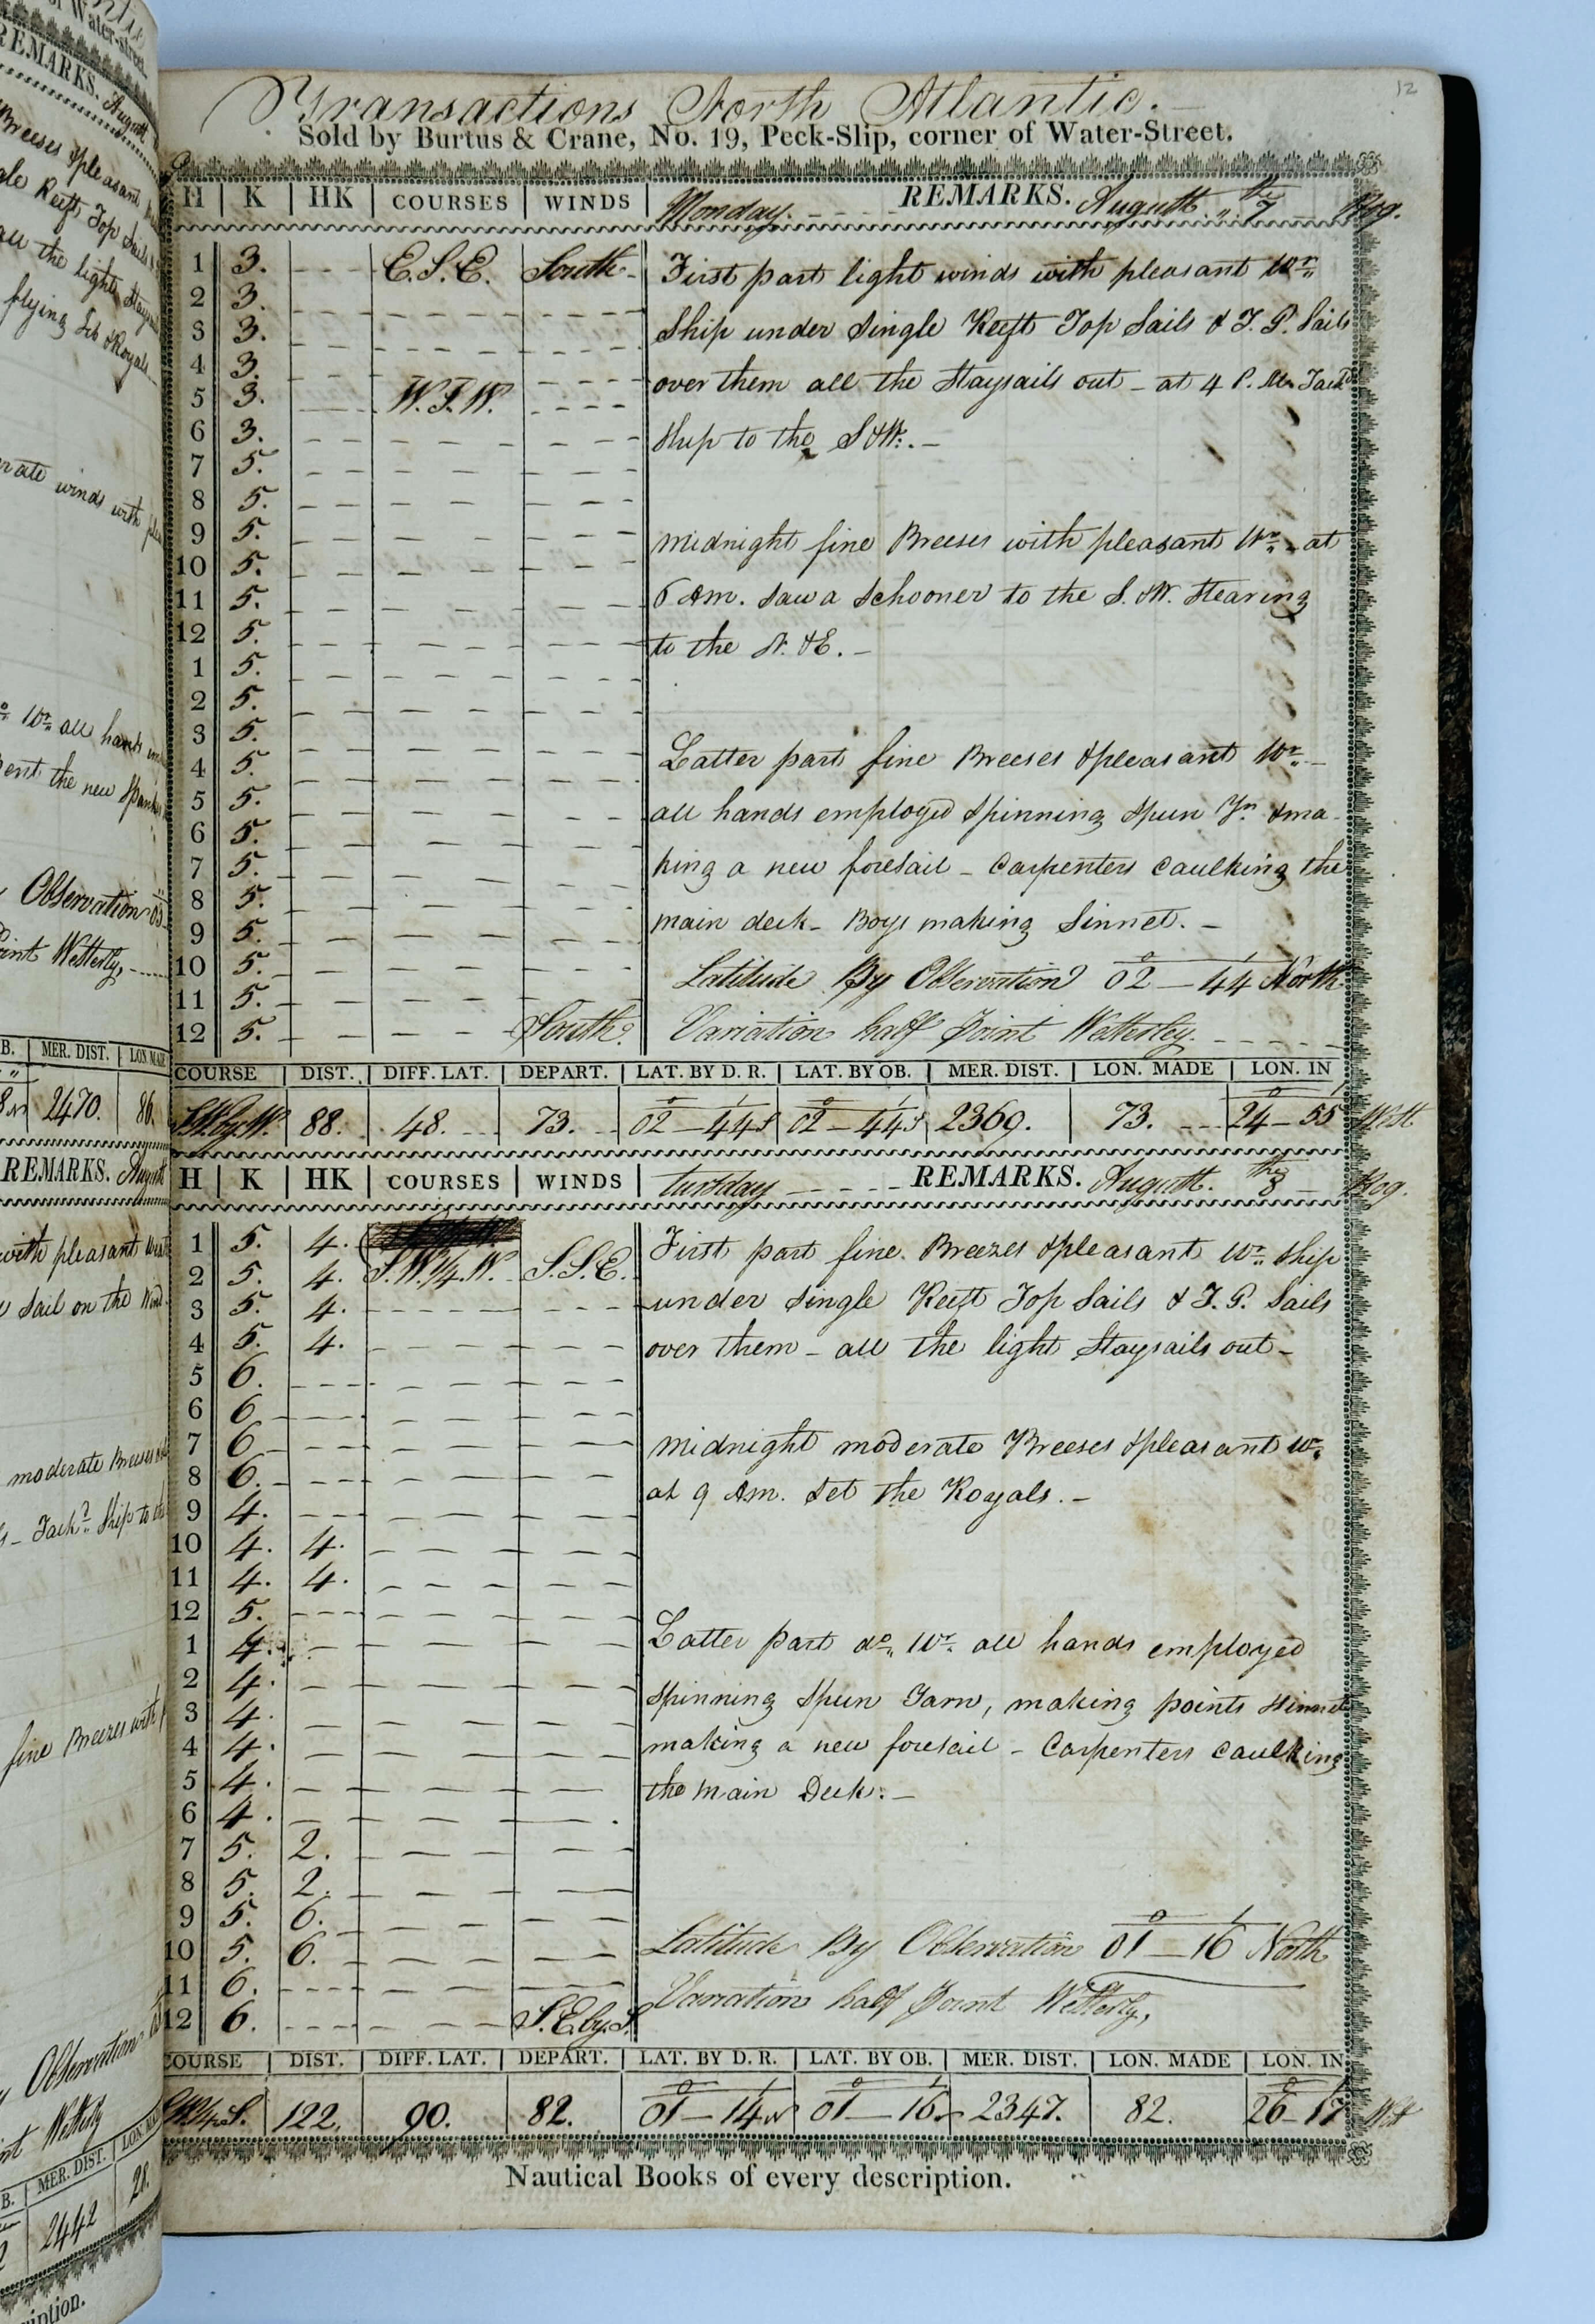 Transactions North Atlantic.
12
Sold by Burtus & Crane, No. 19, Peck-Slip, corner of Water-Street.
H | K | HK | COURSES | WINDS | Monday. REMARKS. August th 7
1 3. E.S.E. South First part light winds with pleasant Wr
2 3. Ship under Single Reeft Top Sails & T. G. Sails
3 3.
4 3. over them all the Staysails out - at 4 P. M. Tackd
5 3. W.S.W.
6 3. Ship to the S & W. -
7 5.
8 5.
9 5. Midnight fine Breeses with pleasant Wr at
10 5.
11 5. 6 Am. Saw a Schooner to the S. & W. Stearing
12 5. to the N. & E. -
1 5.
2 5.
3 5.
4 5. Latter part fine Breeses & pleasant Wr -
5 5. all hands employed Spinning Spun Yn & ma-
6 5.
7 5. king a new foresail - Carpenters Caulking the
8 5.
9 5. main deck - Boys making Sinnet. -
10 5. Latitude By Observation 02 - 44 North
11 5.
12 5. South. Variation half Point Westerley.
COURSE | DIST. | DIFF. LAT. | DEPART. | LAT. BY D. R. | LAT. BY OB. | MER. DIST. | LON. MADE | LON. IN
S.W.by.W. 88. 48. 73. 02 - 44 02 - 44 2369. 73. 24 - 55 West
H | K | HK | COURSES | WINDS | tuesday REMARKS. August. th 8
1 5. 4. First part fine Breezes & pleasant Wr Ship
2 5. 4. S.W.1/4.W. S.S.E.
3 5. 4. under Single Reeft Top Sails & T. G. Sails
4 5. 4. over them - all the light Staysails out -
5 6.
6 6
7 6 Midnight moderate Breeses & pleasant Wr
8 6. at 9 Am. Set the Royals. -
9 4.
10 4. 4.
11 4. 4.
12 5.
1 4. Latter part do Wr all hands employed
2 4.
3 4. Spinning Spun Yarn, making points Sinnet
4 4. making a new foresail - Carpenters Caulking
5 4. the Main Deck: -
6 4.
7 5. 2.
8 5. 2.
9 5. 6.
10 5. 6. Latitude By Observation 01 - 16 North
11 6. Variation half Point Westerly,
12 6. S.E.by.S.
COURSE | DIST. | DIFF. LAT. | DEPART. | LAT. BY D. R. | LAT. BY OB. | MER. DIST. | LON. MADE | LON. IN
122. 90. 82. 01 - 14 N 01 - 16 2347. 82. 26 - 17
Nautical Books of every description.